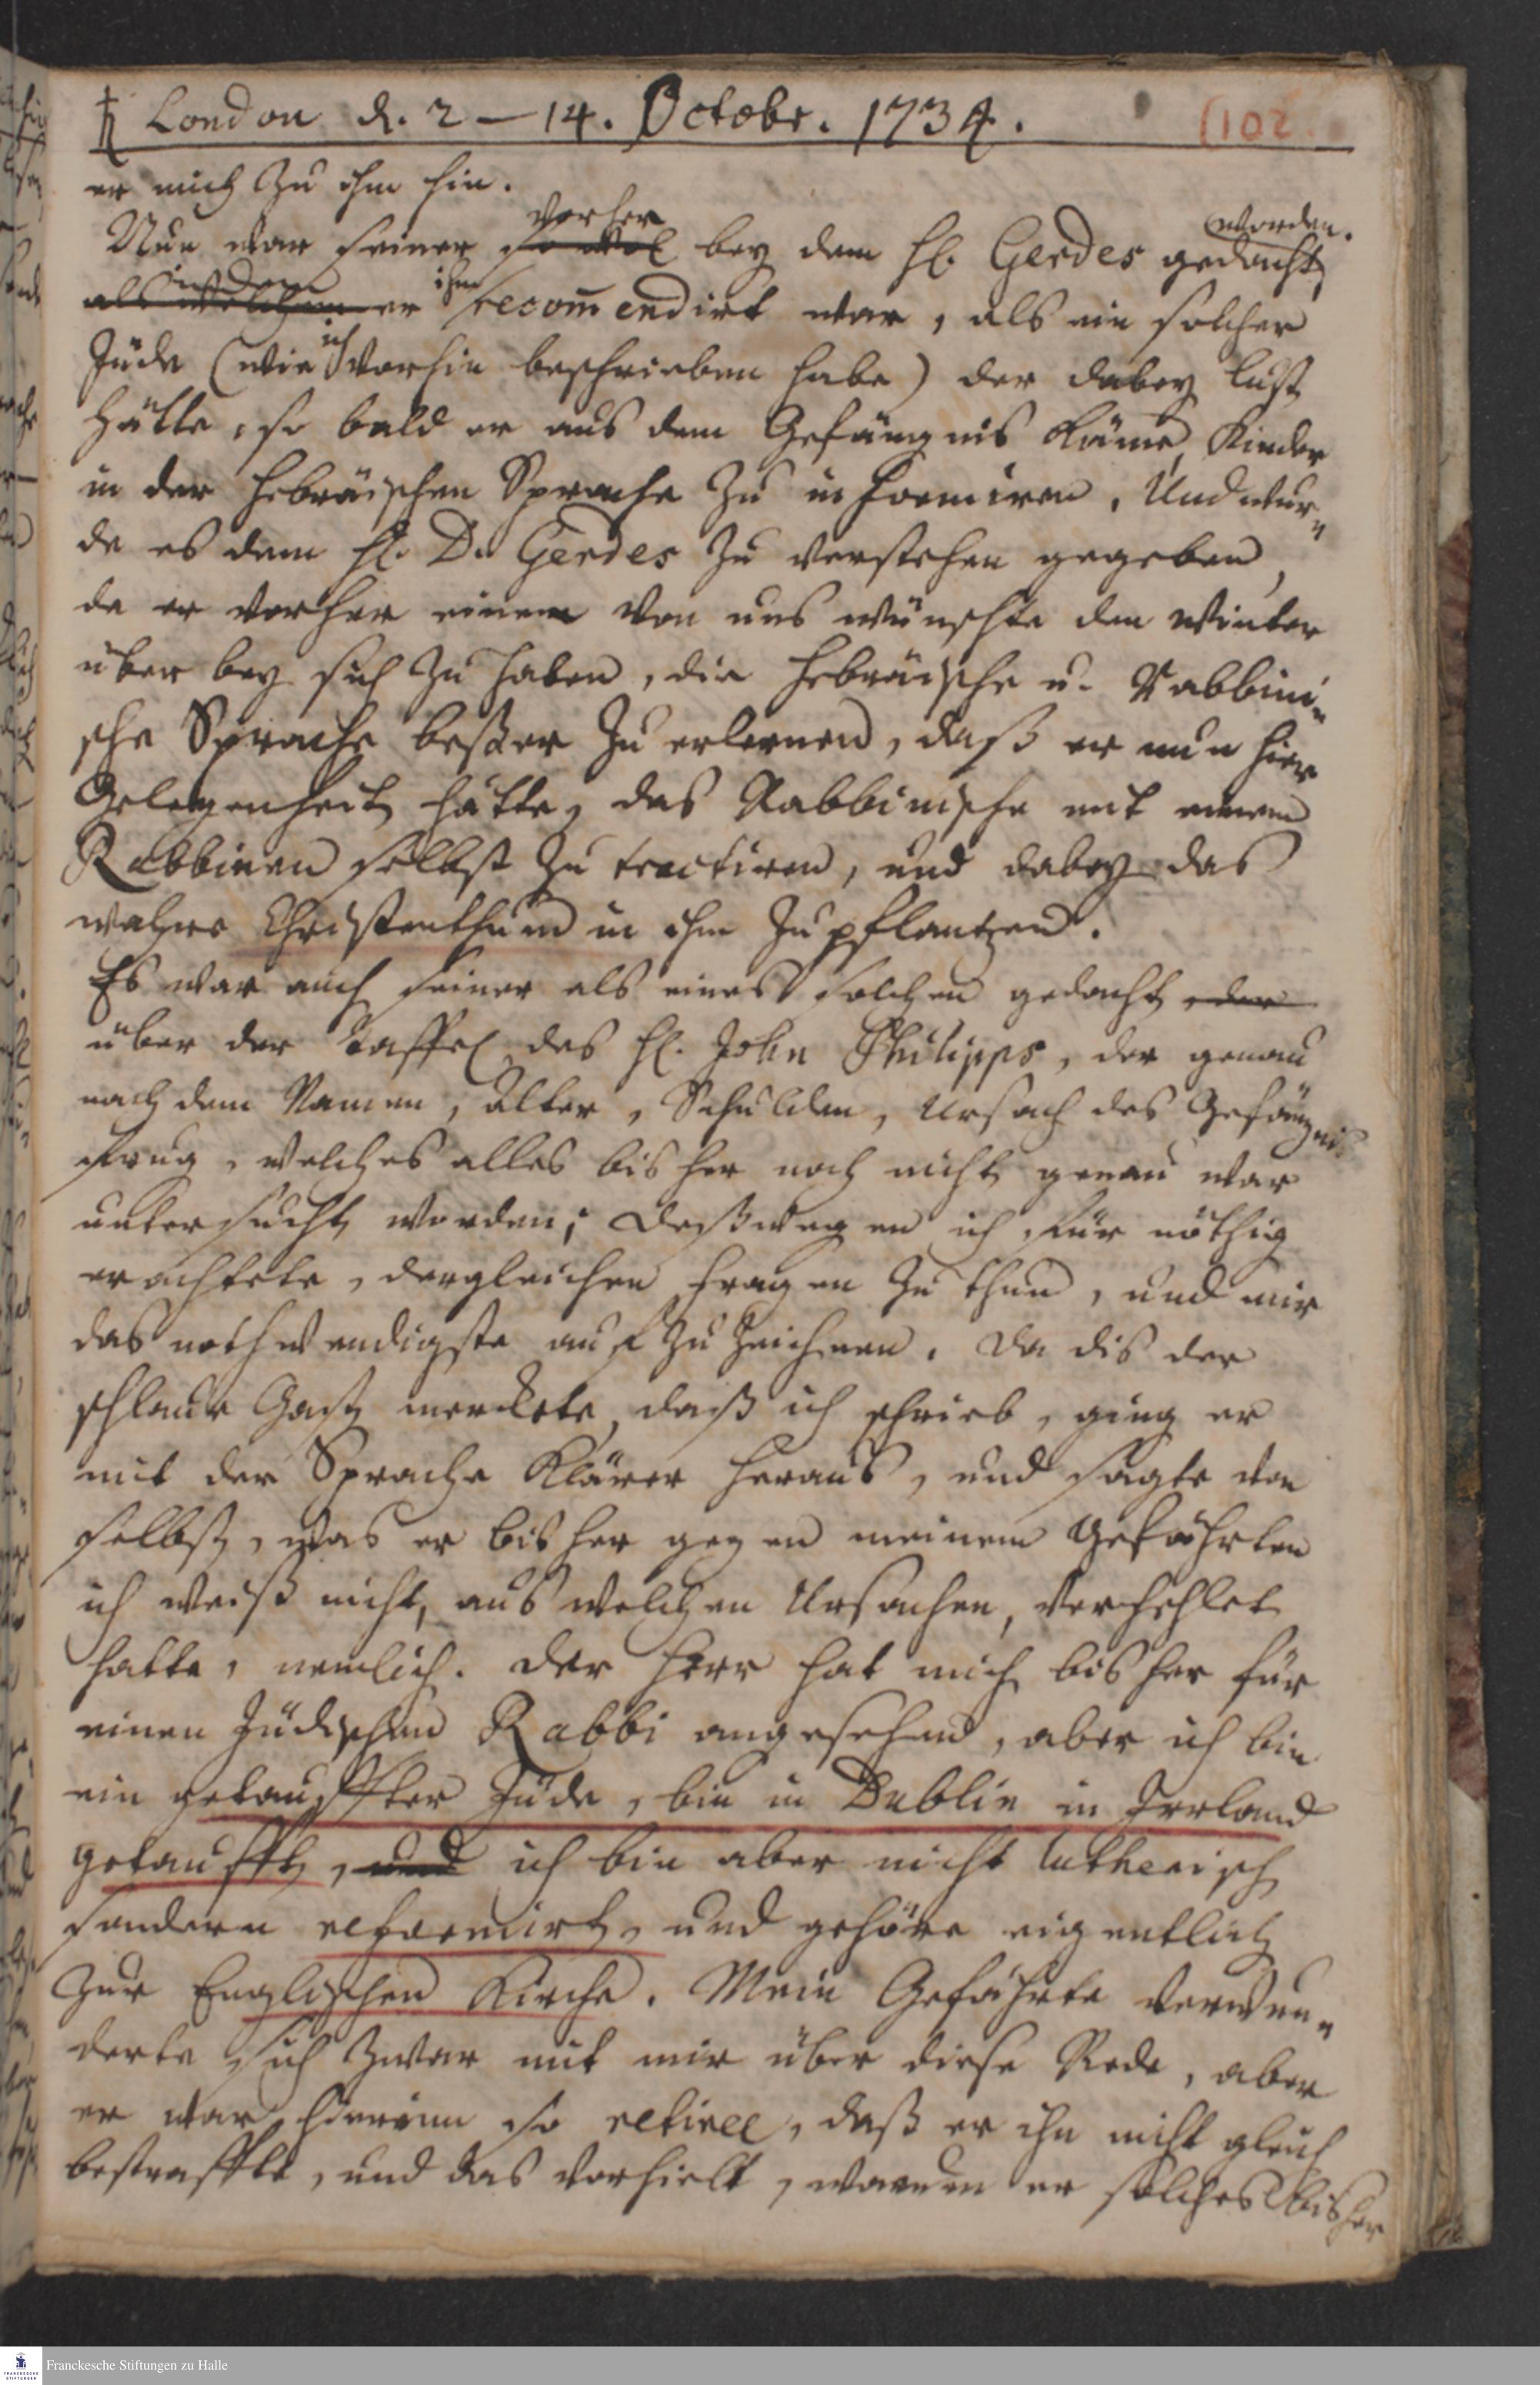 London d. 2 — 14. Octobr. 1734. (102.
er mich zu ihm hin.
vorher worden.
Nun war seiner so wol bey dem H. Gerdes gedacht
indem ihm
als welchem er recom̄endirt war, als ein solcher
ich
Jude (wie vorhin beschrieben habe) der dabey lust
hätte, so bald er aus dem Gefängnis käme, Kinder
in der Hebräischen Sprache zu informiren. Und wur„
de es dem H. D. Gerdes zu verstehen gegeben,
da er vorher einem von uns wünschte den Winter
über bey sich zu haben, die Hebräische u. Rabbini„
sche Sprache beßer zu erlernen, daß er nun hier
Gelegenheit hätte, das Rabbinische mit einem
Rabbinen selbst zu tractiren, und dabey das
wahre Christenthum in ihm zu pflantzen.
Es war auch seiner als eines solchen gedacht, der
über der Taffel des H. John Philipps, der genau
nach dem Namen, Alter, Schulden, Ursach des Gefängnis
frug, welches alles bisher noch nicht genau war
untersucht worden; deßwegen ich für nöthig
erachtete, dergleichen fragen zu thun, und mir
das nothwendigste auf zu zeichnen. Da dis der
schlaue Gast merckete, daß ich schrieb, ging er
mit der Sprache klärer heraus, und sagte von
selbst, was er bisher gegen meinem Gefährten
ich weiß nicht, aus welchen Ursachen, verhehlet
hatte, nemlich. Der Herr hat mich bisher für
einen Jüdischen Rabbi angesehen, aber ich bin
ein getauffter Jude, bin in Dublin in Irrland
getaufft, und ich bin aber nicht lutherisch
sondern reformirt, und gehöre eigentlich
zur Englischen Kirche. Mein Gefährte verwun„
derte sich zwar mit mir über diese Rede, aber
er war hierinn so retiree, daß er ihn nicht gleich
bestraffte, und das vorhielt, warum er solches bisher
Franckesche Stiftungen zu Halle